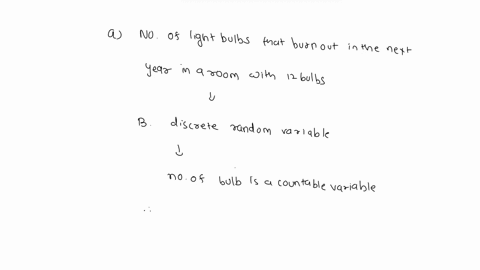 a) No. of light bulbs that burn out in the next
year in a room with 12 bulbs
↓
B. discrete random variable
↓
no. of bulb is a countable variable
∴